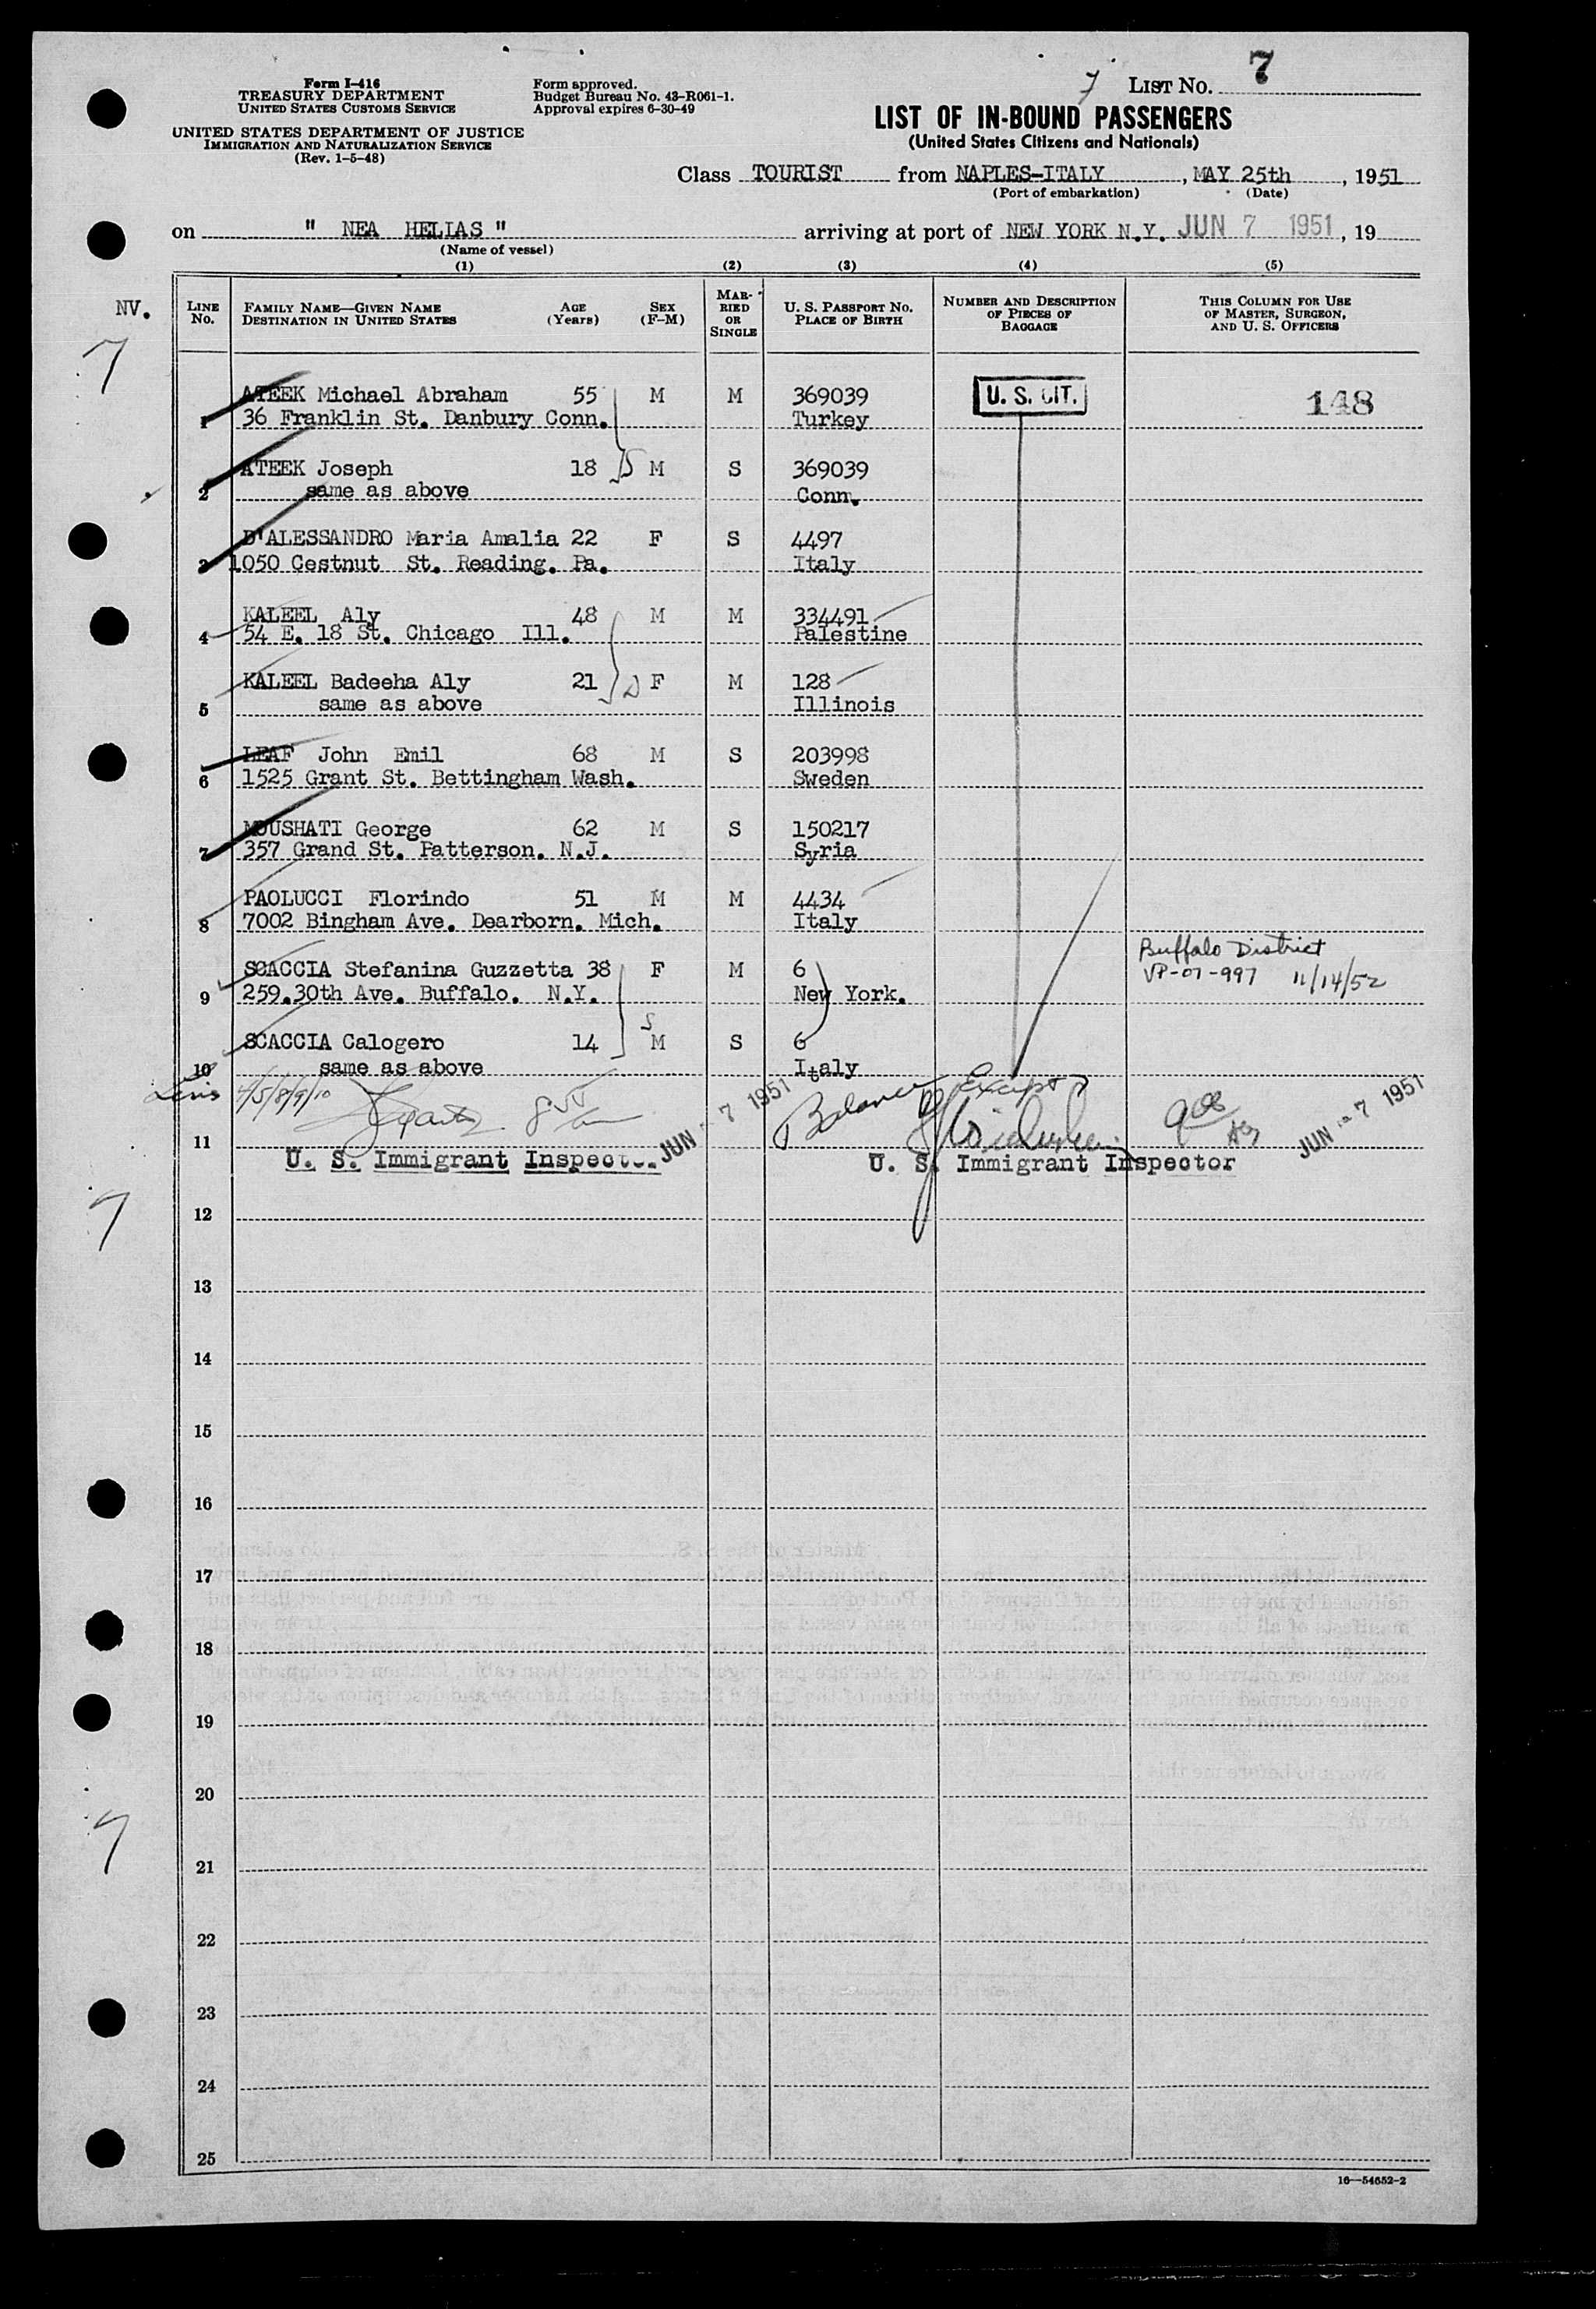 7
List No. 7
Form I-416
TREASURY DEPARTMENT
UNITED STATES CUSTOMS SERVICE
Form approved.
Budget Bureau No. 43-R061-1.
Approval expires 6-30-49
UNITED STATES DEPARTMENT OF JUSTICE
IMMIGRATION AND NATURALIZATION SERVICE
(Rev. 1-5-48)
LIST OF IN-BOUND PASSENGERS
(United States Citizens and Nationals)
Class TOURIST from NAPLES-ITALY, MAY 25th, 1951
(Port of embarkation) (Date)
on " NEA HELIAS " arriving at port of NEW YORK N.Y. JUN 7 1951, 19
(Name of vessel)
(1) (2) (3) (4) (5)
NV.
LINE No. FAMILY NAME—GIVEN NAME DESTINATION IN UNITED STATES AGE (Years) SEX (F-M) MARRIED OR SINGLE U. S. PASSPORT NO. PLACE OF BIRTH NUMBER AND DESCRIPTION OF PIECES OF BAGGAGE THIS COLUMN FOR USE OF MASTER, SURGEON, AND U. S. OFFICERS
7
ATEEK Michael Abraham 55 M M 369039 U. S. CIT. 148
1 36 Franklin St. Danbury Conn. Turkey
ATEEK Joseph 18 M S 369039
2 same as above Conn.
D'ALESSANDRO Maria Amalia 22 F S 4497
3 1050 Cestnut St. Reading. Pa. Italy
KALEEL Aly 48 M M 334491
4 54 E. 18 St. Chicago Ill. Palestine
KALEEL Badeeha Aly 21 F M 128
5 same as above Illinois
LEAF John Emil 68 M S 203998
6 1525 Grant St. Bettingham Wash. Sweden
MOUSHATI George 62 M S 150217
7 357 Grand St. Patterson. N.J. Syria
PAOLUCCI Florindo 51 M M 4434
8 7002 Bingham Ave. Dearborn. Mich. Italy
Buffalo District
SCACCIA Stefanina Guzzetta 38 F M 6 VP-07-997 11/14/52
9 259.30th Ave. Buffalo. N.Y. New York.
SCACCIA Calogero 14 M S 6
10 same as above Italy
4/5/8/9/10 JUN 7 1951 Balance Except JUN 7 1951
11
U. S. Immigrant Inspector U. S. Immigrant Inspector
12
7
13
14
15
16
17
18
19
20
7
21
22
23
24
25
16—54652-2